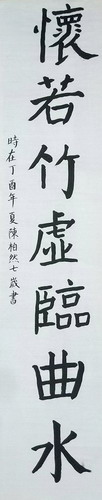 懷若竹虛臨曲水
時在丁酉年夏陳柏然七歲書